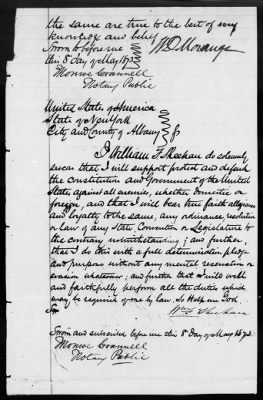 the same are true to the best of my
knowledge and belief
Sworn to before me
this 5 day of May 1873
Monroe Crannell
Notary Public
United States of America
State of New York
City and County of Albany
I William F. Sheehan do solemnly
swear that I will support protect and defend
the Constitution and Government of the United
States, against all enemies, whether domestic or
foreign, and that I will bear true faith, allegiance
and loyalty to the same, any ordinance, resolution
or law of any State, Convention or Legislature to
the contrary notwithstanding; and further,
that I do this with a full determination, pledge
and purpose without any mental reservation or
evasion whatever; and further that I will well
and faithfully perform all the duties which
may be required of me by law. So Help me God.
Wm F Sheehan
Sworn and subscribed before me this 5 Day of May 1873
Monroe Crannell
Notary Public